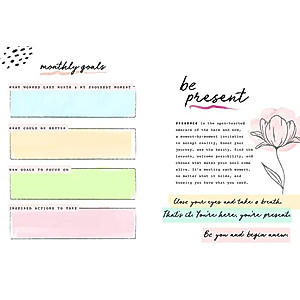 monthly goals
WHAT WORKED LAST MONTH & MY PROUDEST MOMENT
WHAT COULD GO BETTER
NEW GOALS TO FOCUS ON
INSPIRED ACTIONS TO TAKE
be
present
PRESENCE is the open-hearted
embrace of the here and now,
a moment-by-moment invitation
to accept reality, honor your
journey, see the beauty, find the
lessons, welcome possibility, and
choose what makes your soul come
alive. It's meeting each moment,
no matter what it holds, and
knowing you have what you need.
Close your eyes and take a breath.
That's it. You're here, you're present.
Be you and begin anew.